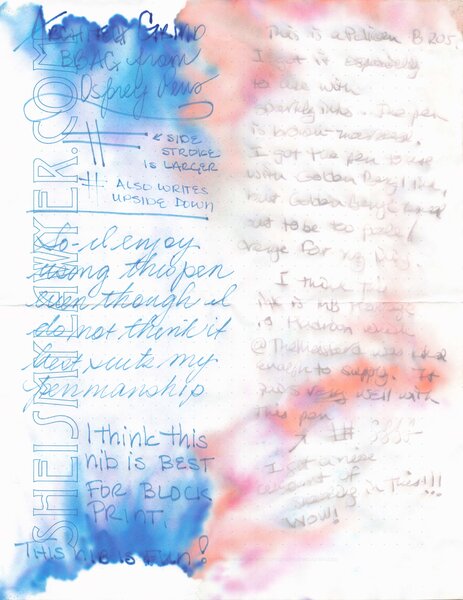 ARCHITECT GRIND
BBAG from
Osprey Pens
← SIDE
STROKE
IS LARGER
ALSO WRITES
UPSIDE DOWN
So-I enjoy
using this pen
even though I
do not think it
best suits my
penmanship
I think this
nib is BEST
FOR BLOCK
PRINT.
THIS nib is Fun!
SHEISMYLAWYER.COM
This is a Pelikan B 205.
I got it especially
to use with
sparkly inks. The pen
is brown
I got the pen to use
with Golden Beryl ink,
but Golden Beryl turned
out to be too pale /
orange for my
I think the
ink is
enough to supply. It
pairs very well with
this pen
I got a nice
amount of
shading in this!!!
WOW!